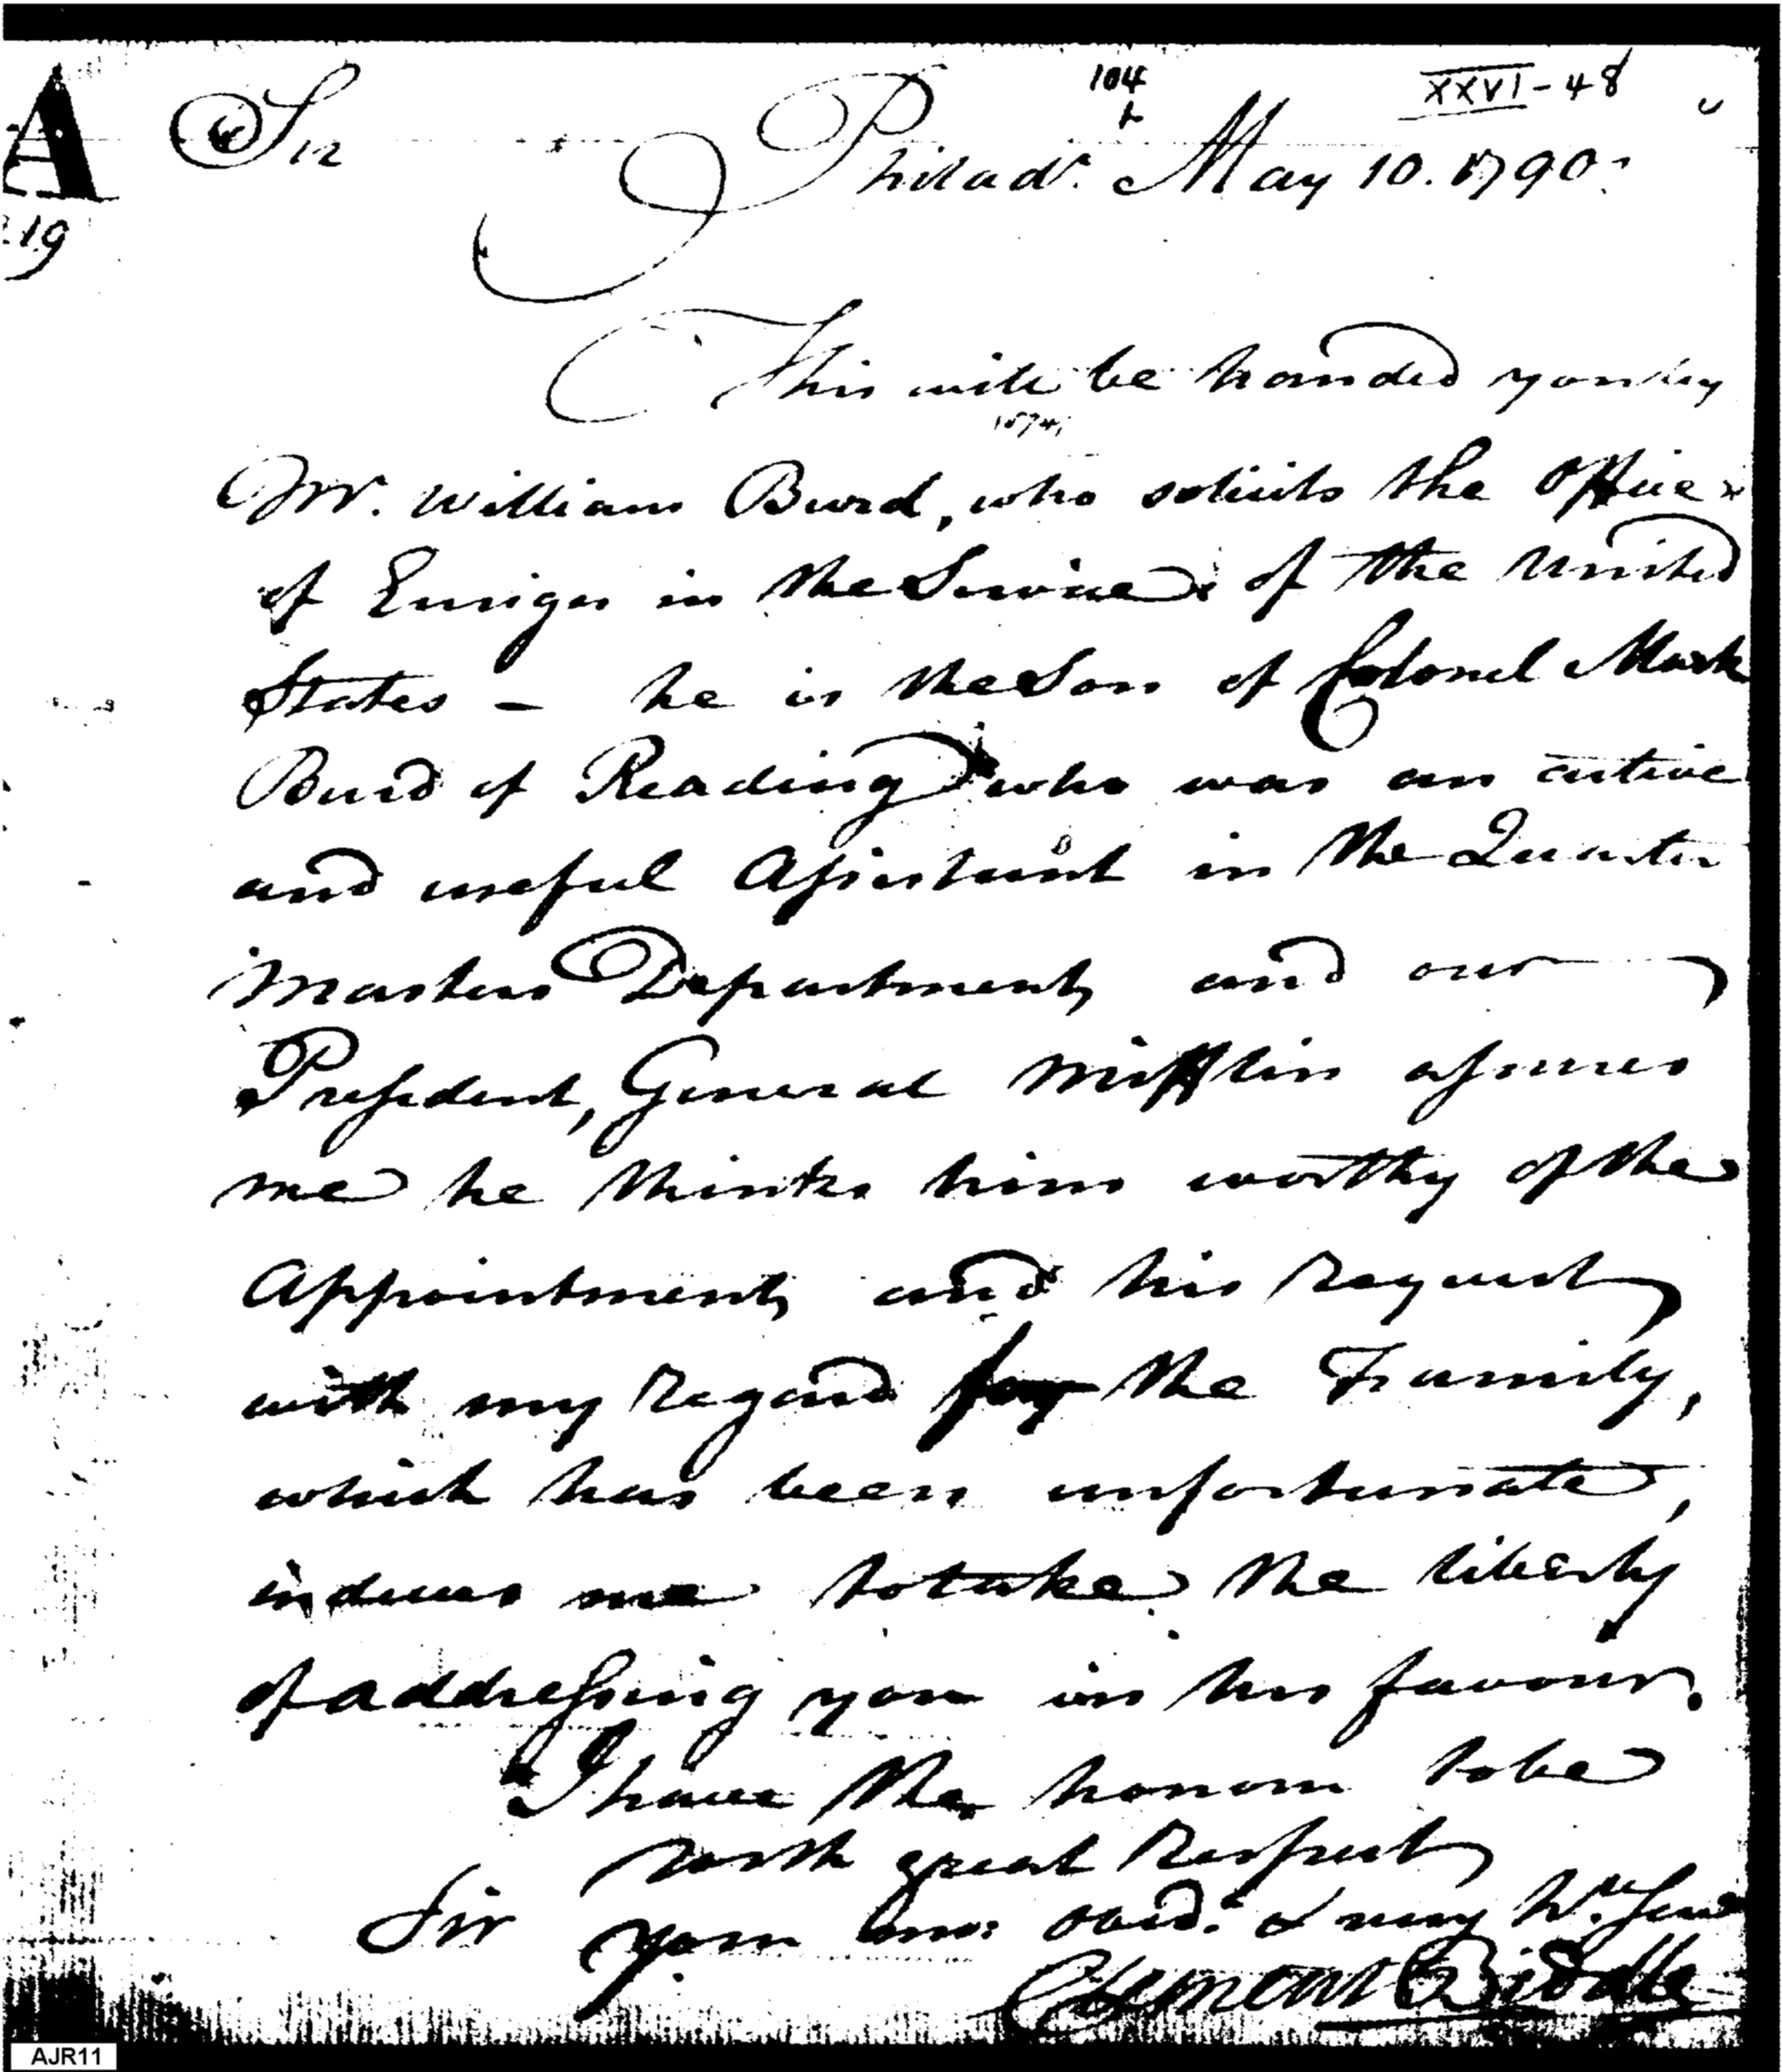 104
XXVI-48
A
19
Sir
Philad. May 10. 1790.
This will be handed you by
Mr. William Burd, who solicits the Office
of Ensign in the Service of the United
States - he is the Son of Colonel Mark
Burd of Reading who was an active
and useful Assistant in the Quarter
Masters Department, and our
President, General Mifflin assures
me he thinks him worthy of the
Appointment, and his request
with my regard for the Family,
which has been unfortunate,
induces me to take the liberty
of addressing you in his favour.
I have the honour to be
with great Respect
Sir your mo: Obed. & very H. Serv
Clement Biddle
AJR11